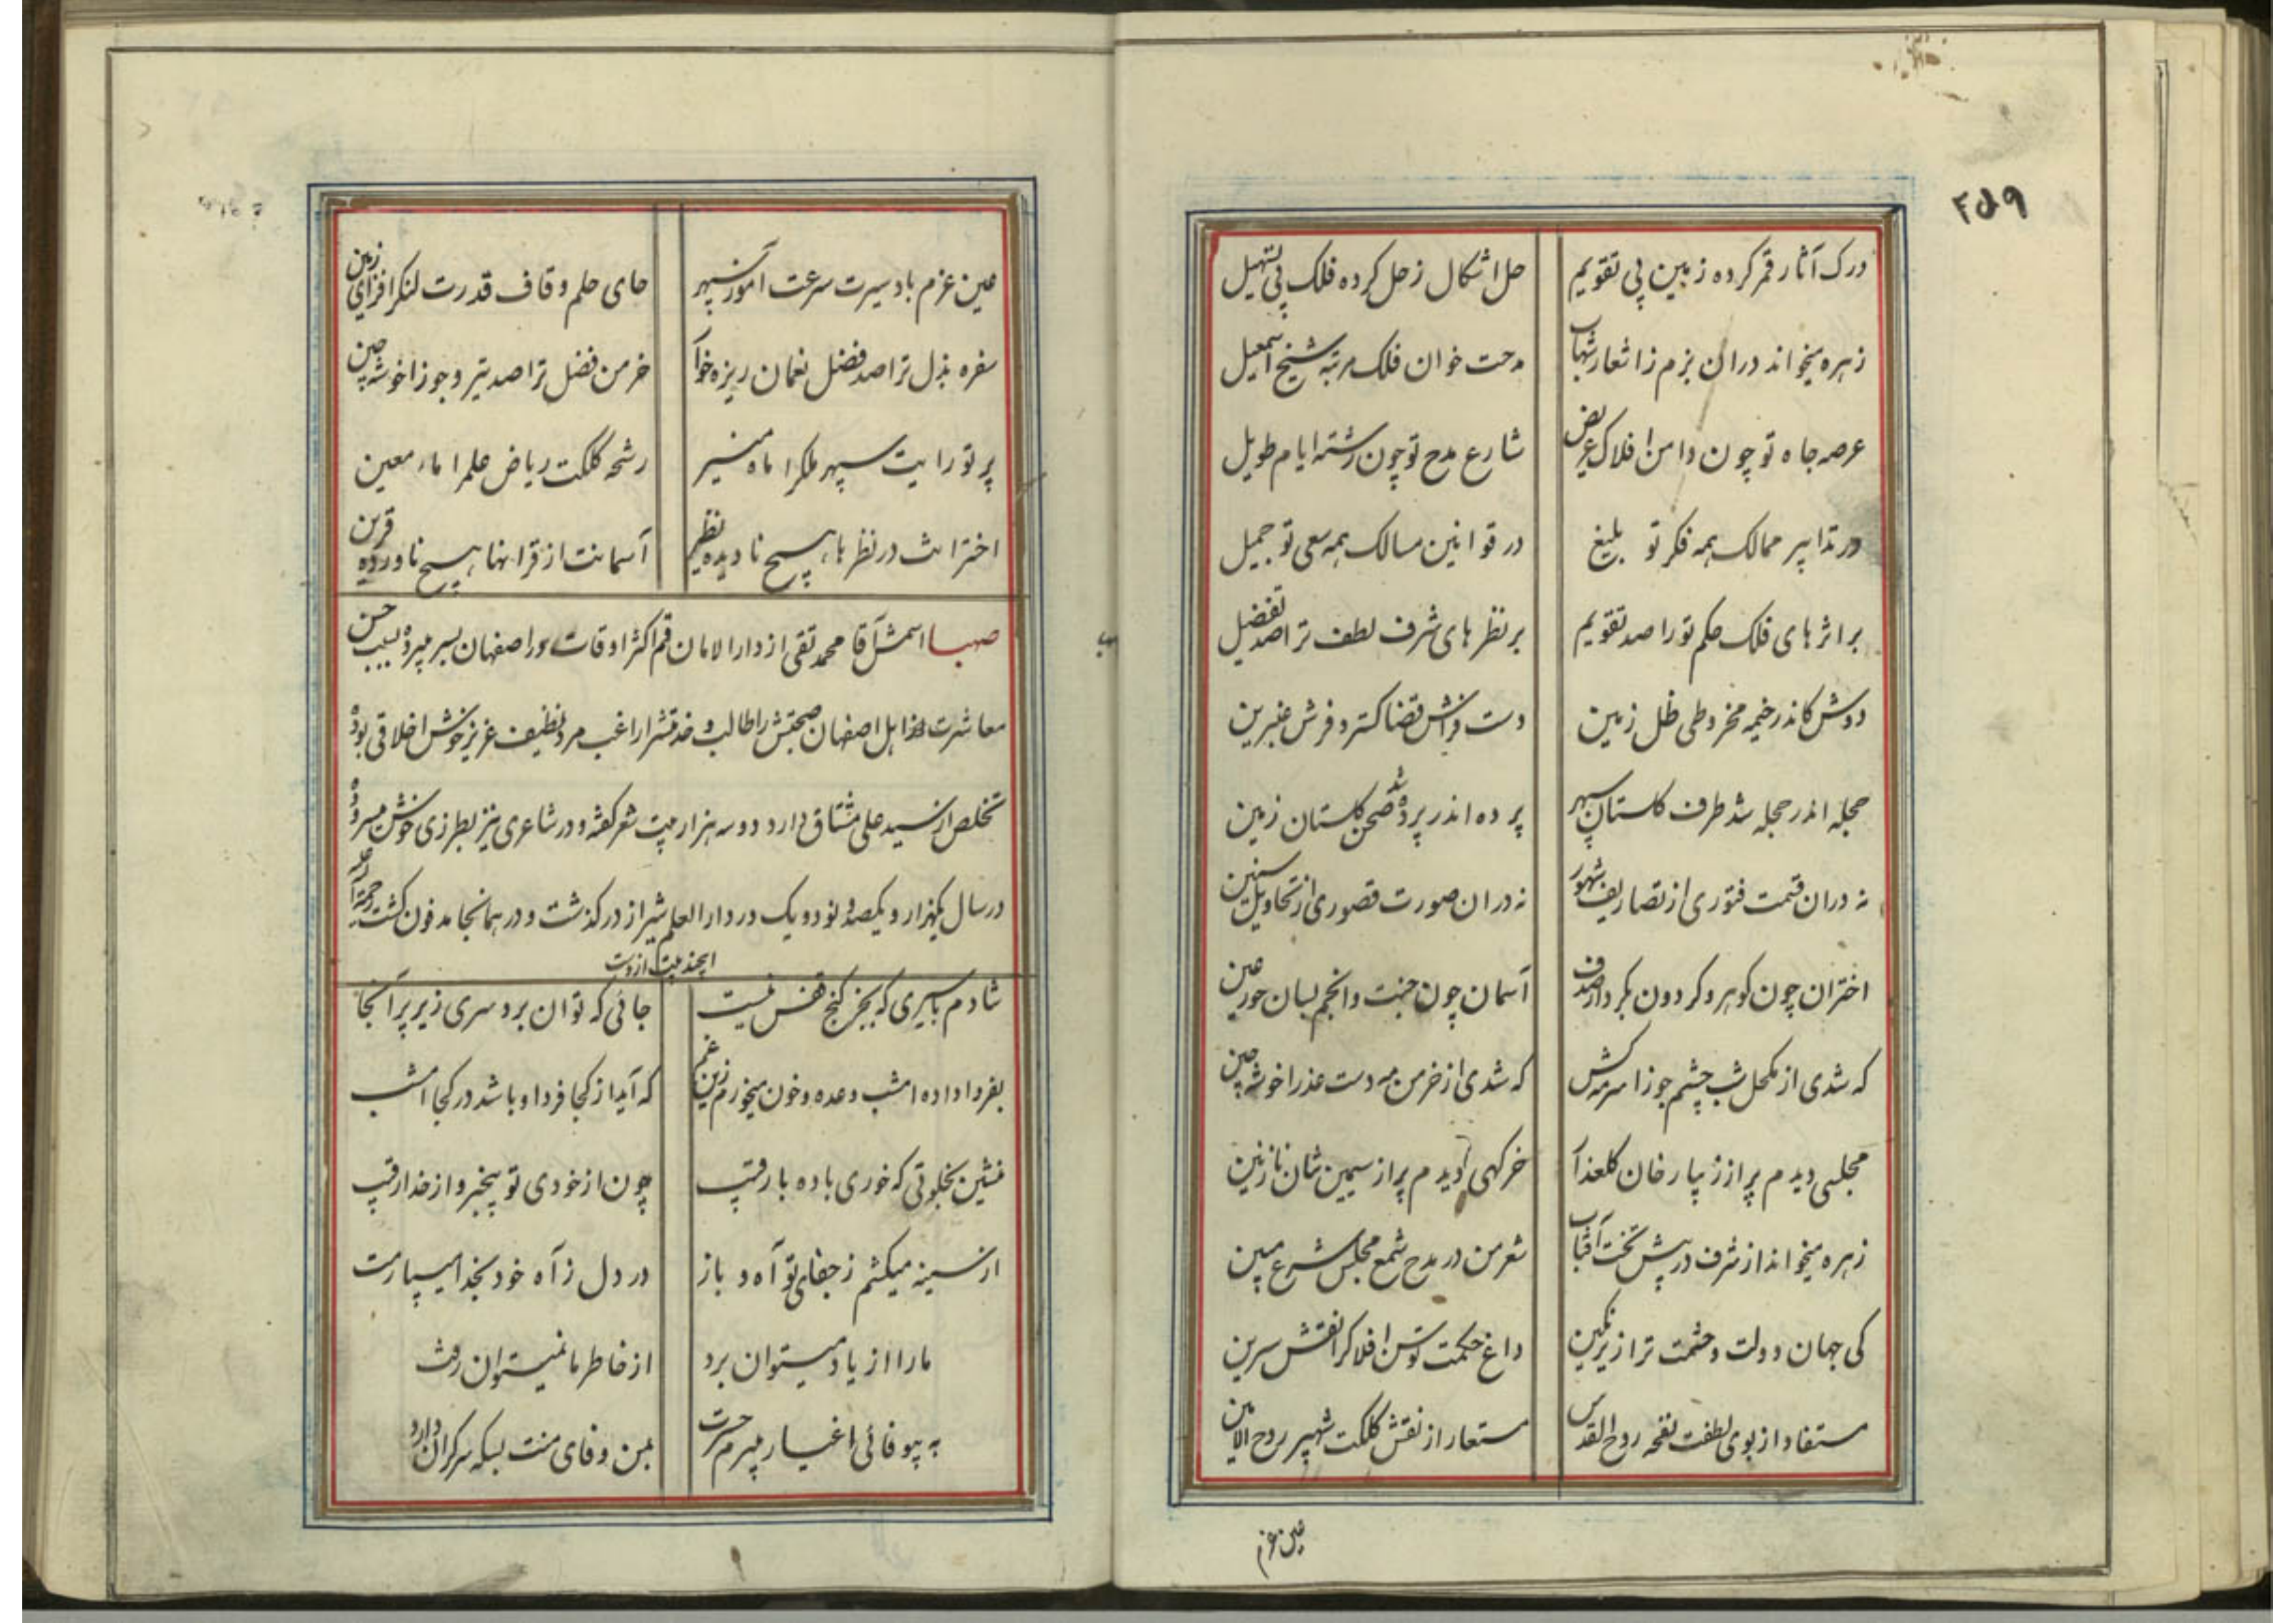 ۲۵۹
درک آثار قمر کرده زمین پی تقویم
حل اشکال زحل کرده فلک پی تسهیل
زهره میخواند دران بزم ز اشعار شهاب
مدحت خوان فلک مرتبه شیخ اسمعیل
عرصه جاه تو چون دامن افلاک عریض
شارع مدح تو چون رشته ایام طویل
در تدابیر ممالک همه فکر تو بلیغ
در قوانین مسالک همه سعی تو جمیل
بر اثرهای فلک حکم تو را صد تقویم
بر نظرهای شرف لطف ترا صد تفضیل
دوش کاندر خیمه مخروطی ظل زمین
دست فراش قضا کسترد فرش عنبرین
حجله اندر حجله شد طرف کلستان سپهر
پرده اندر پرده شد صحن کلستان زمین
نه دران قسمت فتوری از تصاریف شهور
نه دران صورت قصوری از تحاویل سنین
اختران چون کوهر و کردون بکردار صدف
آسمان چون جنت و انجم بسان حور عین
که شدی از مکحل شب چشم جوزا سرمه کش
که شدی از خرمن مه دست عذرا خوشه چین
مجلسی دیدم پر از زیبا رخان کلعذار
خرکهی دیدم پر از سیمین تنان نازنین
زهره میخواند از شرف در پیش تخت آفتاب
شعر من در مدح شمع مجلس شرع مبین
کی جهان دولت و حشمت ترا زیر نکین
داغ حکمت توسن افلاکرا نقش سرین
مستفاد از بوی لطفت نفحه روح القدس
مستعار از نقش کلکت شهپر روح الامین
عین عزم
عین عزم باد سیرت سرعت آموز سپهر
حای حلم و قاف قدرت لنکر افزای زمین
سفره بذل ترا صد فضل نعمان ریزه خوار
خرمن فضل ترا صد تیر و جوزا خوشه چین
پرتو رایت سپهر ملکرا ماه منیر
رشحه کلکت ریاض علمرا ماء معین
اخترانت در نظرها هیچ نادیده نظیر
آسمانت از قرانها هیچ ناورده قرین
صهبا اسمش آقا محمد تقی از دار الامان قم اکثر اوقات در اصفهان بسر میبرده بسبب حسن
معاشرت اهل اصفهان صحبتش را طالب و خدمتشرا راغب مرد نظیف عزیز خوش اخلاقی بوده
تخلص از سید علی مشتاق دارد دو سه هزار بیت شعر کفته و در شاعری نیز بطرزی خوش میسروده
در سال یکهزار و یکصد و نود و یک در دار العلم شیراز درکذشت و در همانجا مدفون کشت رحمة الله علیه
ایچند بیت ازوست
شادم باسیری که بجز کنج قفس نیست
جائی که توان برد سری زیر پر آنجا
بفردا داده امشب وعده و خون میخورم زین غم
که آید از کجا فردا و باشد در کجا امشب
منشین بخلوتی که خوری باده با رقیب
چون از خودی تو بیخبر و از خدا رقیب
از سینه میکشم ز جفای تو آه و باز
در دل ز آه خود بخدا میسپارمت
ما را از یاد میتوان برد
از خاطر ما نمیتوان رفت
به بیوفائی اغیار میبرم حسرت
بمن وفای منت بسکه سرکران دارد